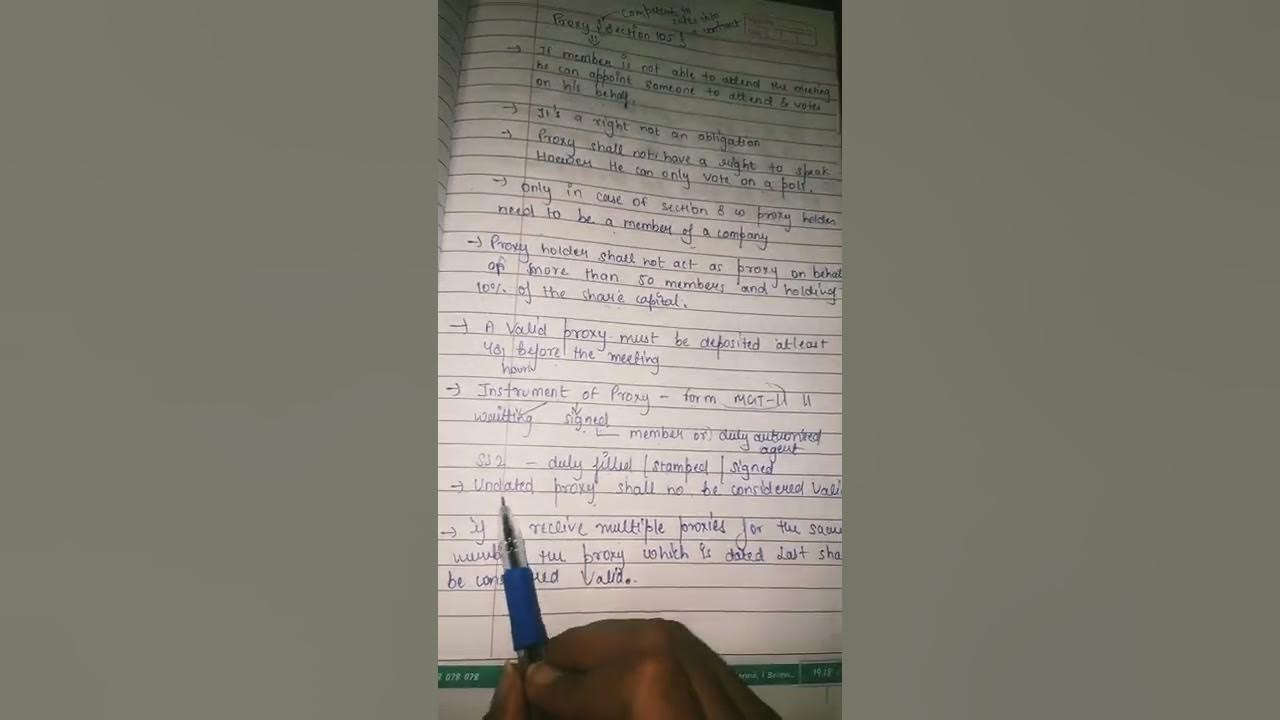 competent to
enter into
a contract
Proxy {Section 105}
→ If member is not able to attend the meeting
he can appoint someone to attend & votes
on his behalf.
→ It's a right not an obligation
→ Proxy shall not have a right to speak
However He can only vote on a poll.
→ only in case of section 8 co proxy holder
need to be a member of a company
→ Proxy holder shall not act as proxy on behal
of more than 50 members and holding
10% of the share capital.
→ A valid proxy must be deposited atleast
48 before the meeting
hours
→ Instrument of Proxy - form MGT-11 11
writting signed
member or duly authorized
agent
SS2 - duly filled / stamped / signed
→ Undated proxy shall no be considered Vali
→ If receive multiple proxies for the same
the proxy which is dated last sha
be Valid.
078 078
19.18